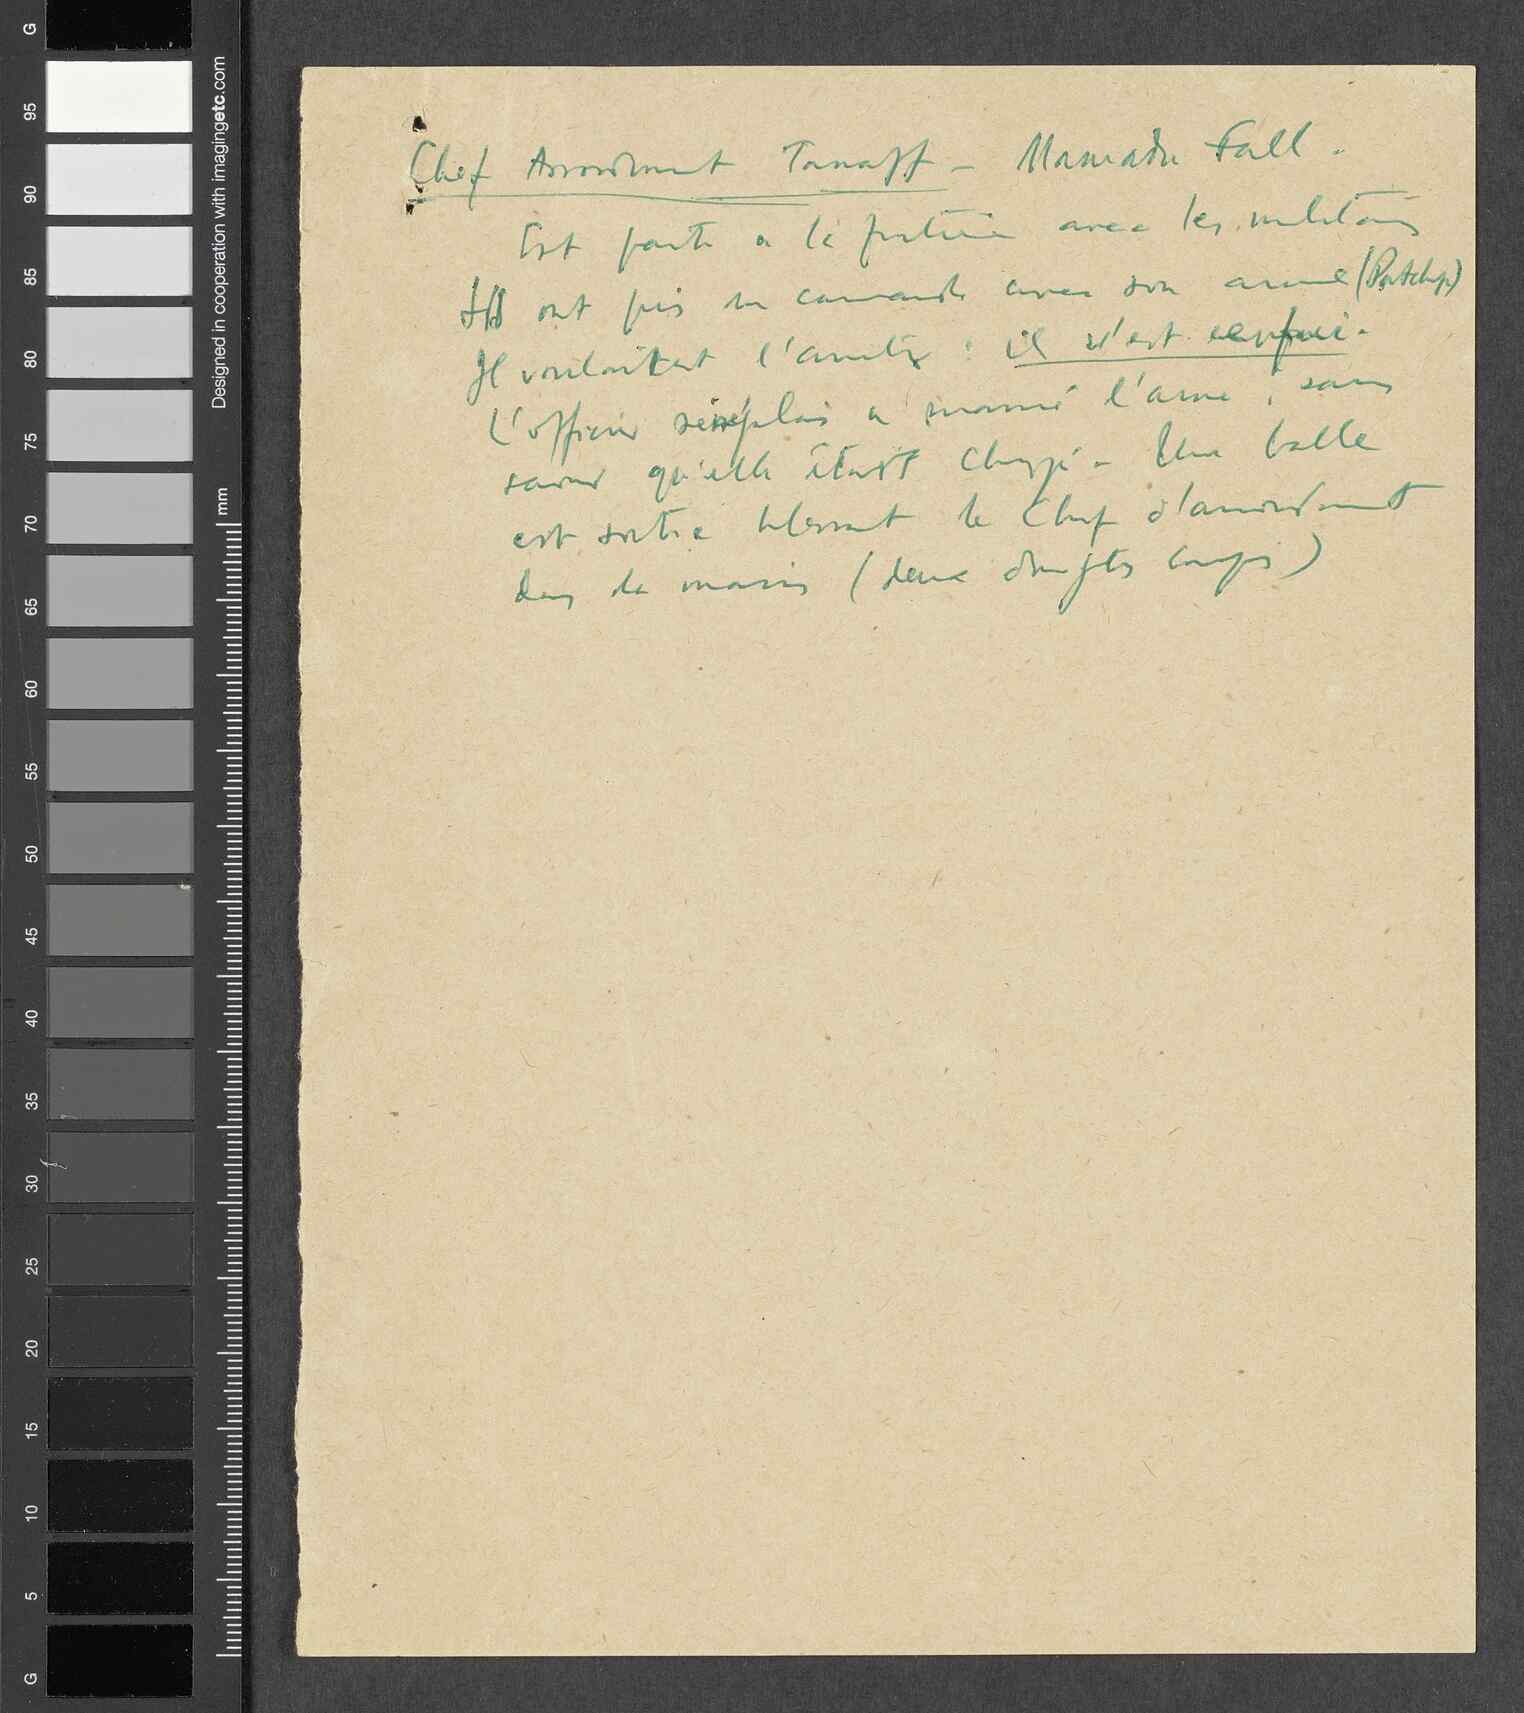 G
95
90
85
80
75
70
65
60
55
50
45
40
35
30
25
20
15
10
5
G
Designed in cooperation with imagingetc.com
mm
Chef Arrondment Tanaff - Mamadu Fall.
Est parti a la frontière avec les militais
Ils ont pris un camarade avec son arme
Il voulaitent l'arrêter : il s'est enfui.
L'officier sénéglais a manié l'arme, sans
savoir qu'elle était chargé - Une balle
est sortie blessant le Chef d'arrondment
dans la main (deux doigts coupés)